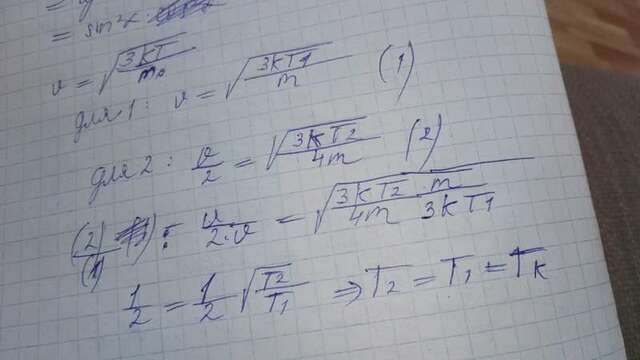 = sin²x
v = √(3kT/m₀)
для 1: v = √(3kT1/m) (1)
для 2: v/2 = √(3kT2/4m) (2)
(2)/(1): v/2·v = √(3kT2/4m · m/3kT1)
1/2 = 1/2 √(T2/T1) ⇒ T2 = T1 = Tк